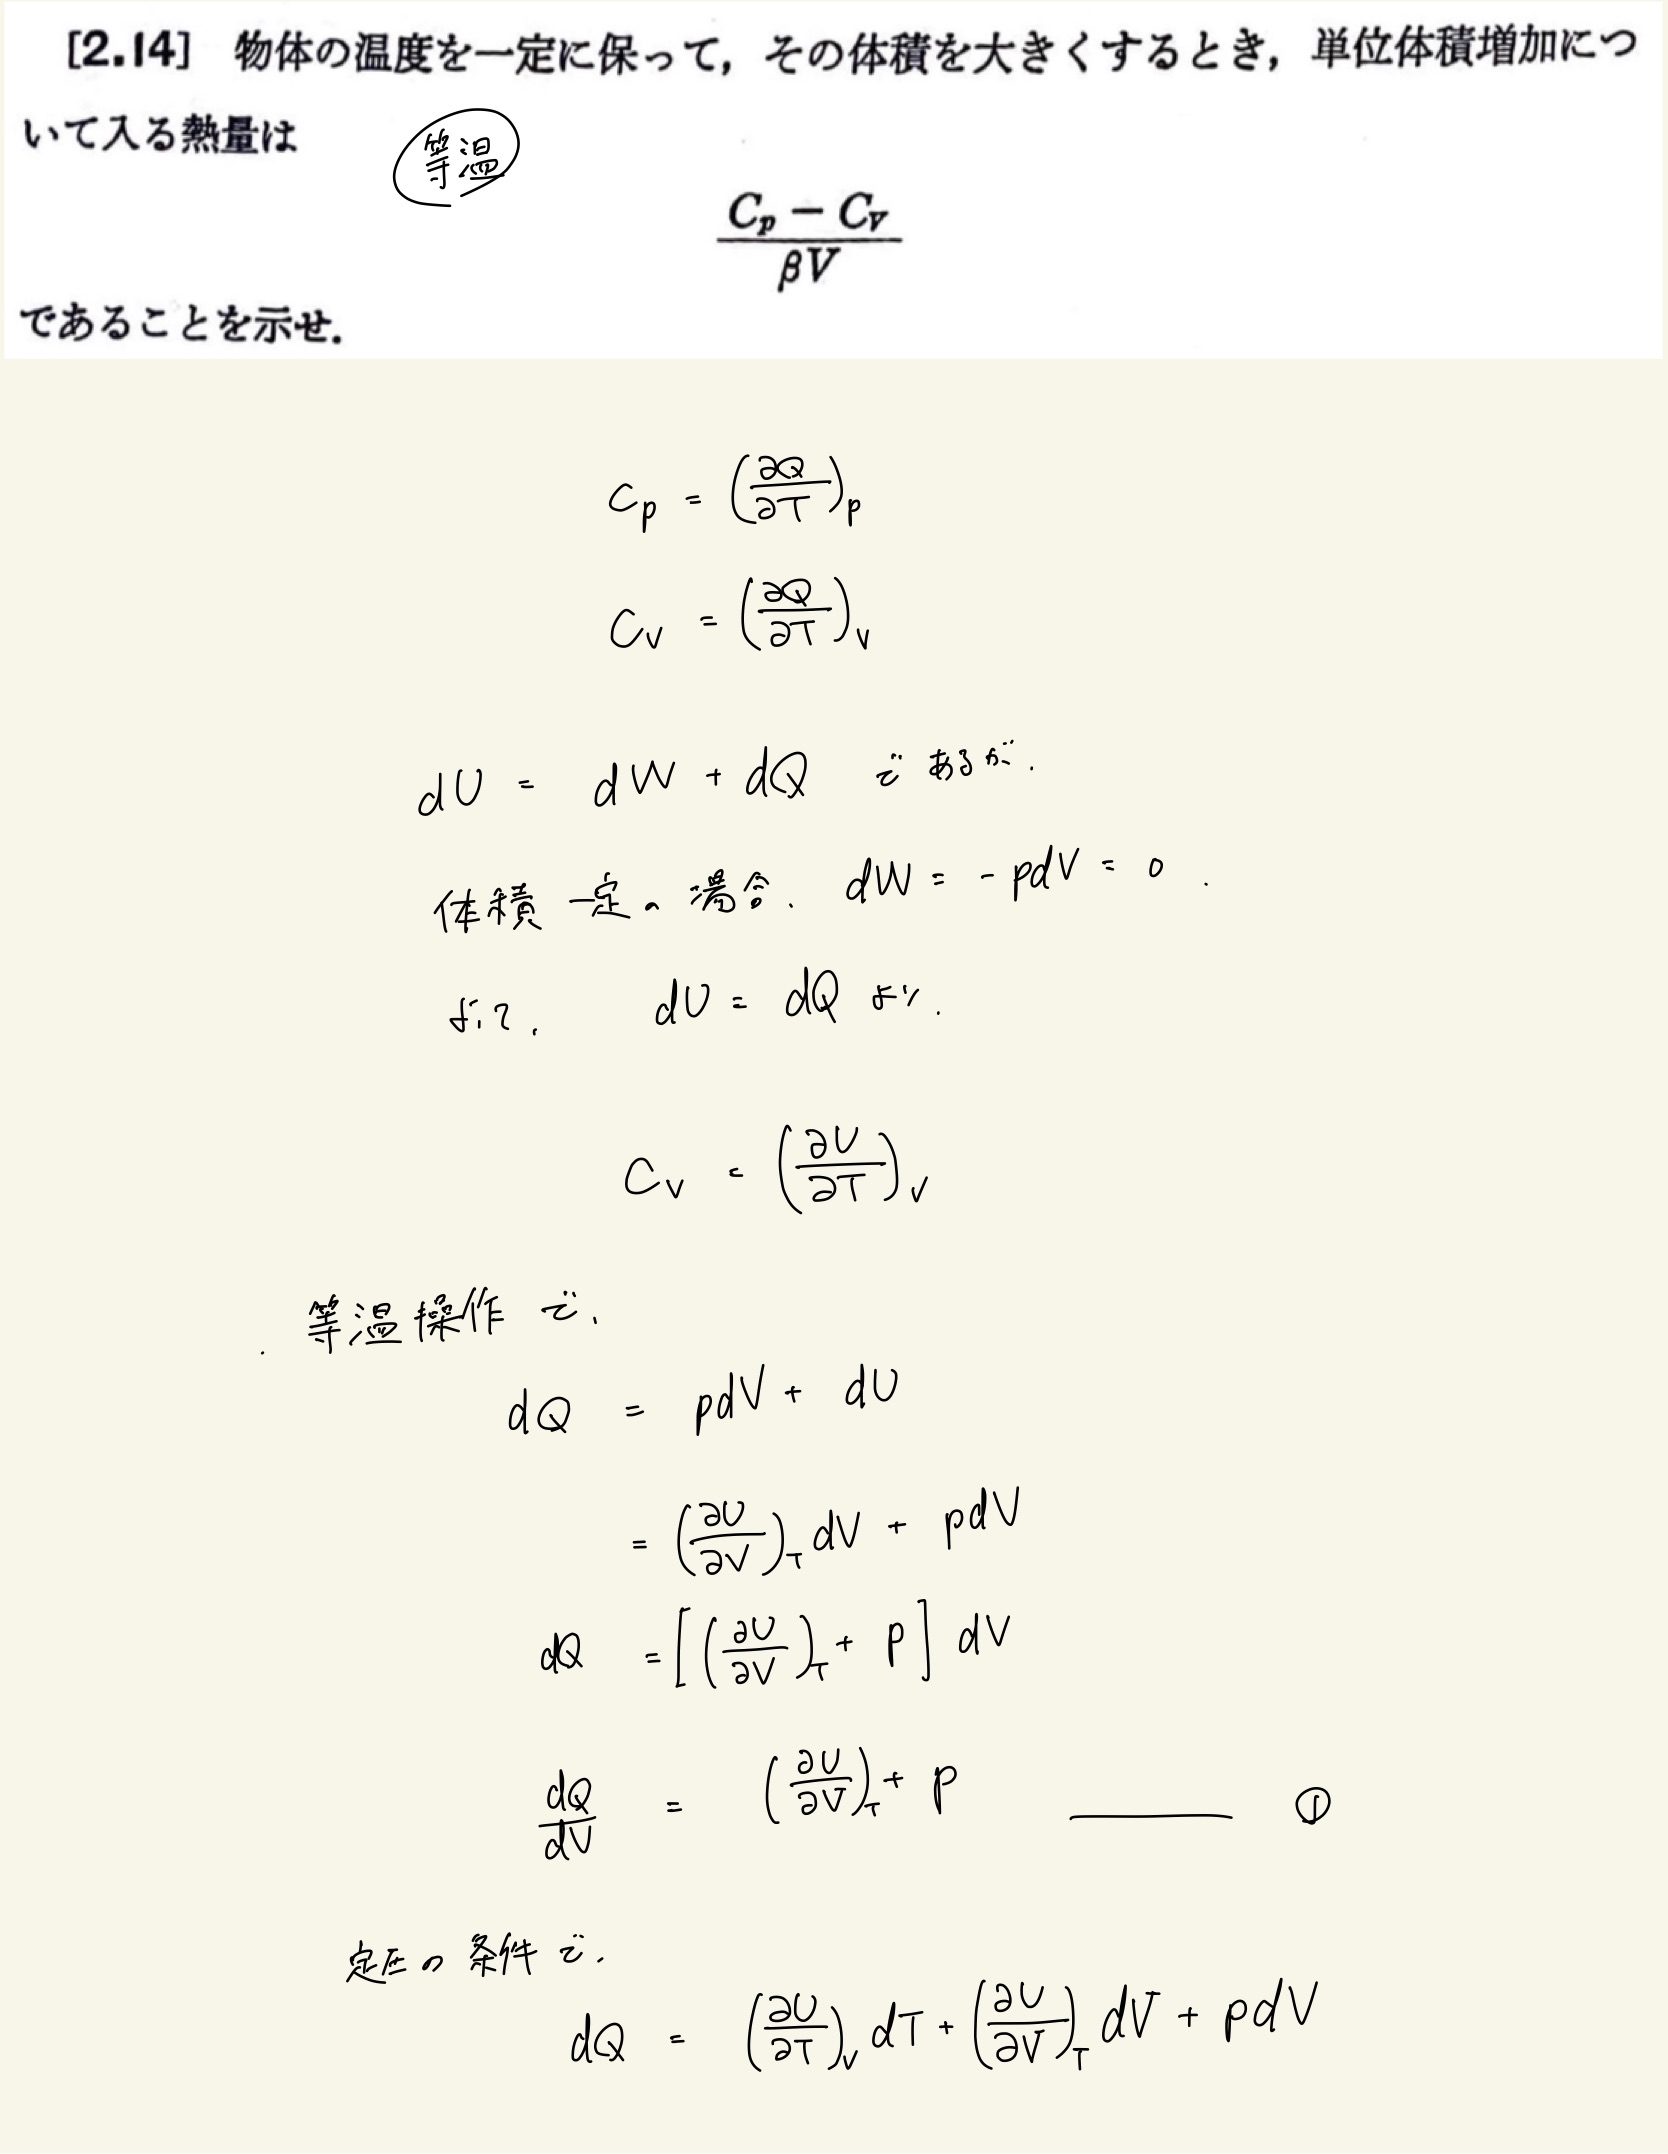 [2.14] 物体の温度を一定に保って，その体積を大きくするとき，単位体積増加につ
いて入る熱量は
等温
(C_p − C_V) / βV
であることを示せ．
C_p = (∂Q/∂T)_p
C_V = (∂Q/∂T)_V
dU = dW + dQ であるが.
体積一定の場合. dW = -pdV = 0 .
よって. dU = dQ より.
C_V = (∂U/∂T)_V
等温操作で.
dQ = pdV + dU
= (∂U/∂V)_T dV + pdV
dQ = [(∂U/∂V)_T + p] dV
dQ/dV = (∂U/∂V)_T + p ——— ①
定圧の条件で.
dQ = (∂U/∂T)_V dT + (∂U/∂V)_T dV + pdV